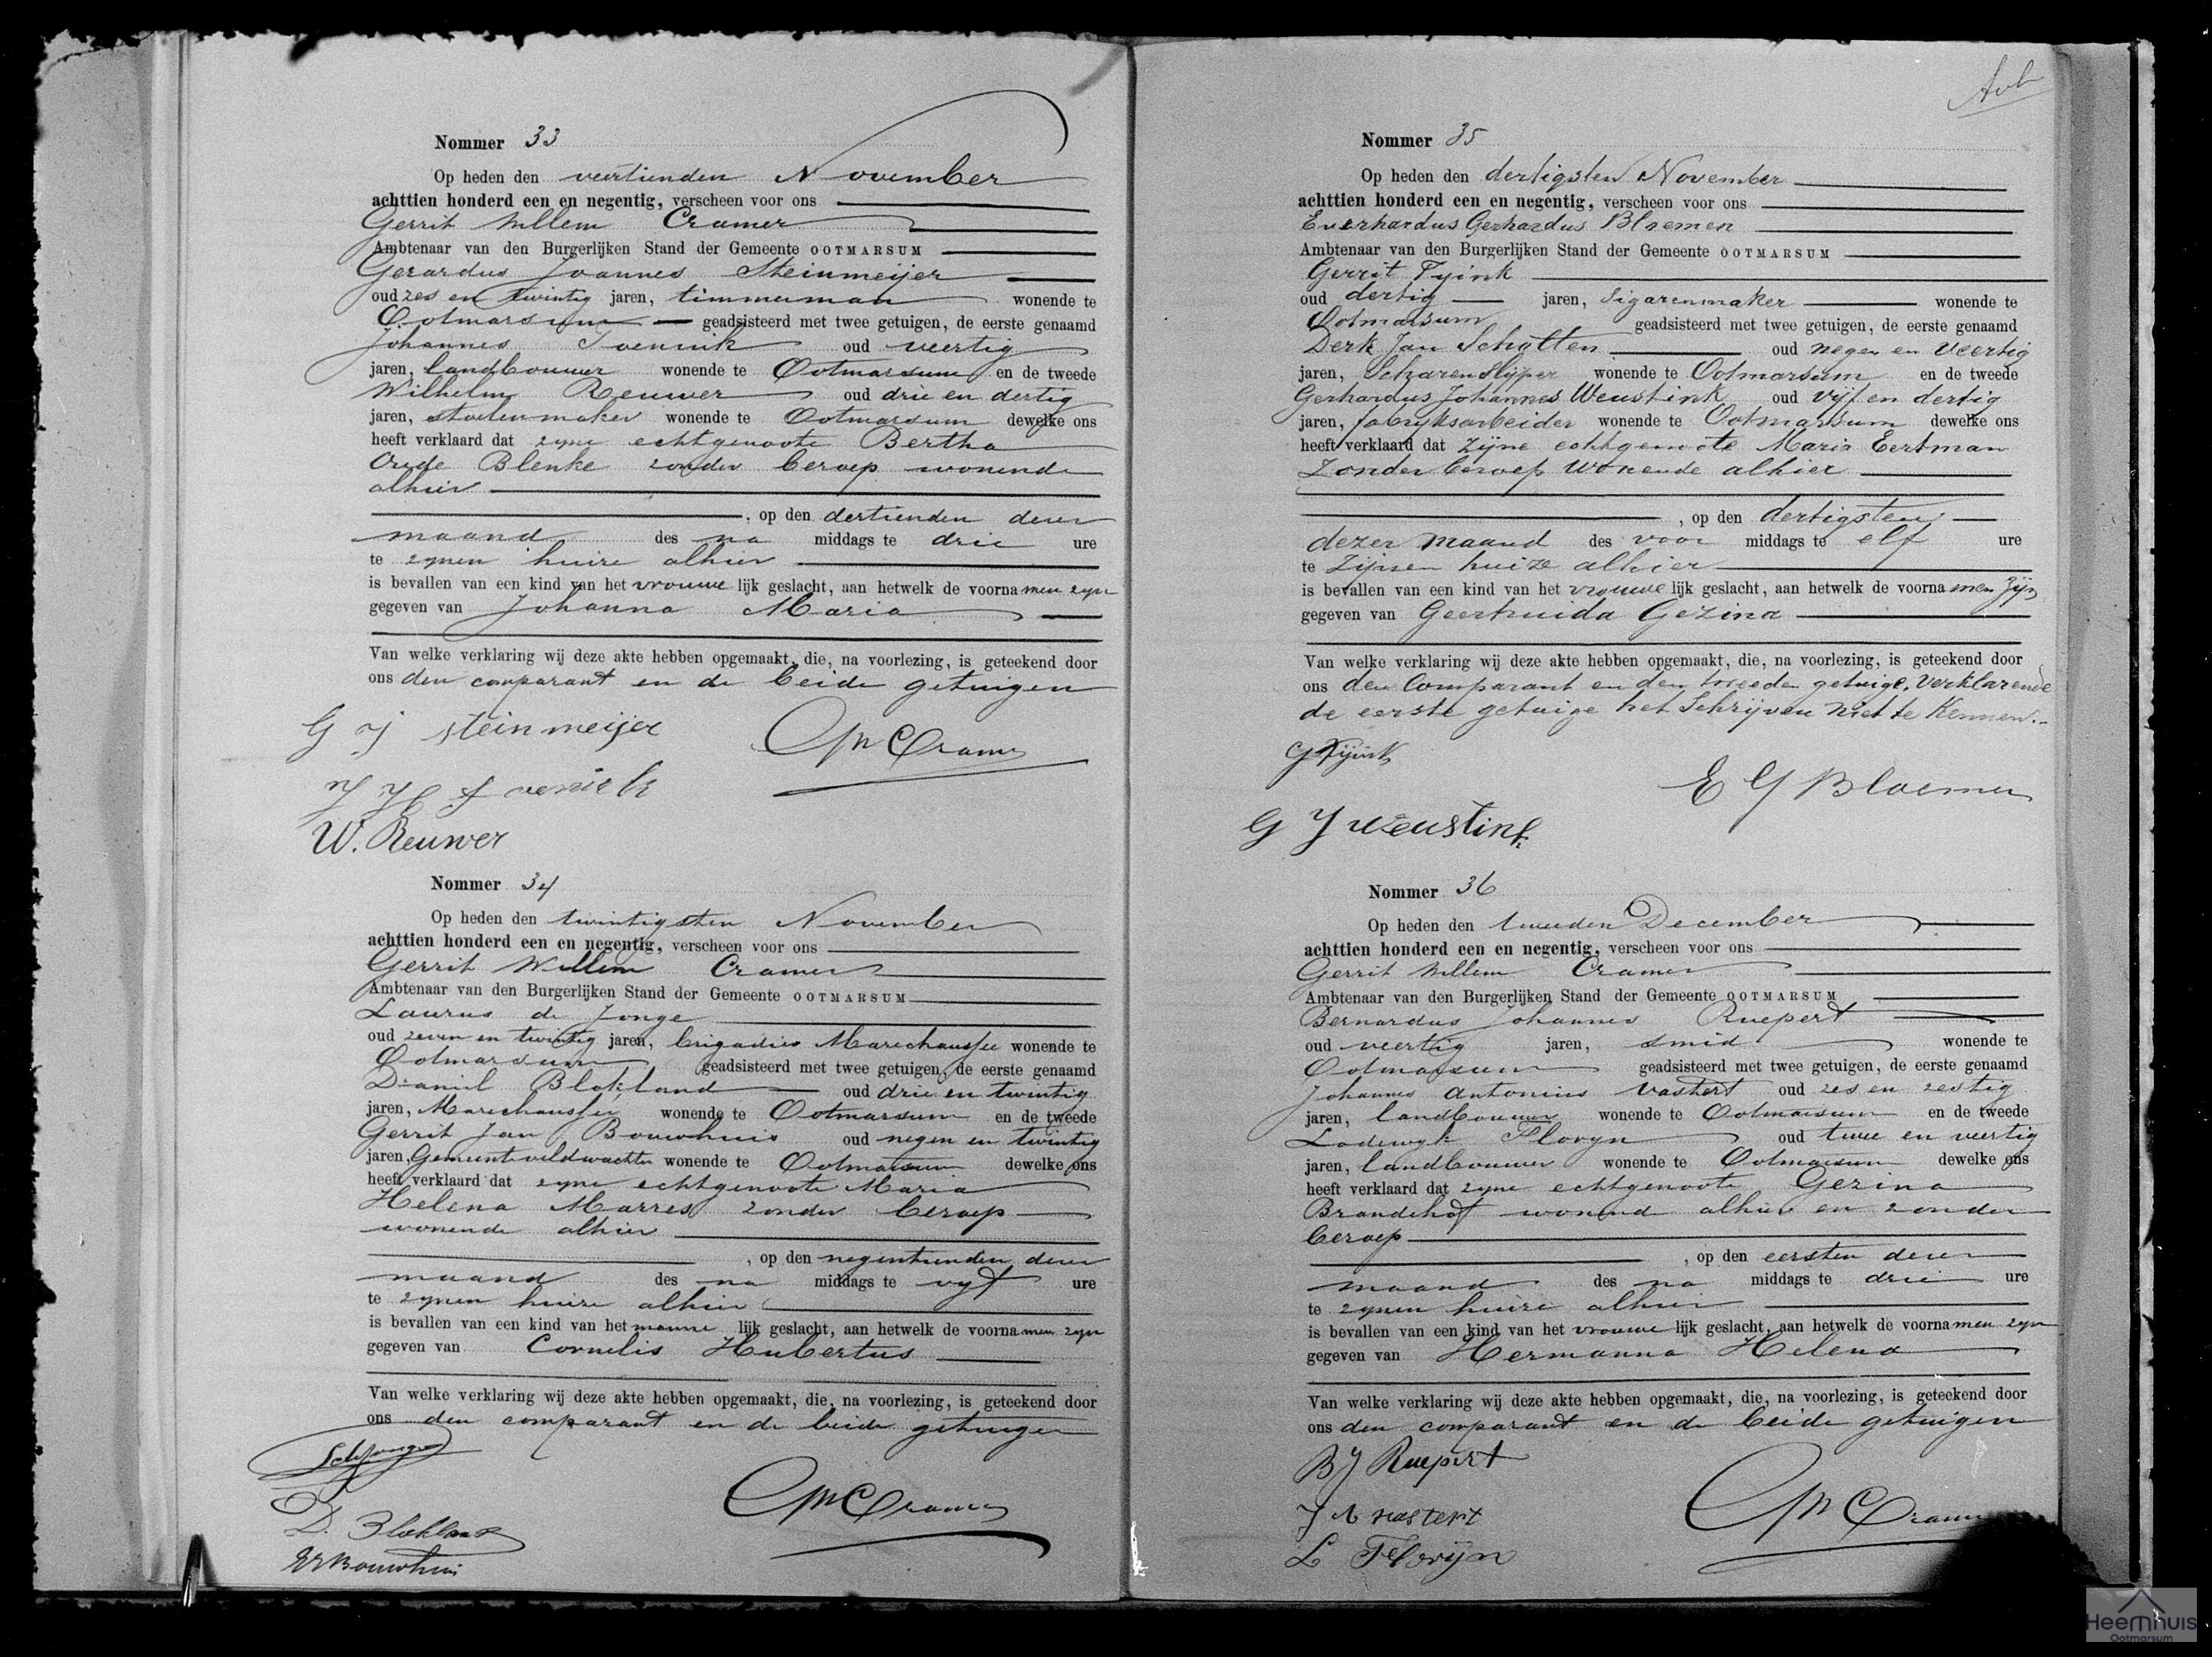 Nommer 33
Op heden den veertienden November
achttien honderd een en negentig, verscheen voor ons
Gerrit Willem Cramer
Ambtenaar van den Burgerlijken Stand der Gemeente OOTMARSUM
Gerardus Joannes Steinmeijer
oud zes en twintig jaren, timmerman wonende te
Ootmarsum geadsisteerd met twee getuigen, de eerste genaamd
Johannes oud veertig
jaren, landbouwer wonende te Ootmarsum en de tweede
Wilhelm Reuwer oud drie en dertig
jaren, stoelenmaker wonende te Ootmarsum dewelke ons
heeft verklaard dat zijne echtgenoote Bertha
Oude Blenke zonder beroep wonende
alhier
, op den dertienden dezer
maand des na middags te drie ure
te zijnen huize alhier
is bevallen van een kind van het vrouwe lijk geslacht, aan hetwelk de voorna men zijn
gegeven van Johanna Maria
Van welke verklaring wij deze akte hebben opgemaakt, die, na voorlezing, is geteekend door
ons den comparant en de beide getuigen
G J Steinmeijer
GW Cramer
W. Reuwer
Nommer 34
Op heden den twintigsten November
achttien honderd een en negentig, verscheen voor ons
Gerrit Willem Cramer
Ambtenaar van den Burgerlijken Stand der Gemeente OOTMARSUM
Laurus de Jonge
oud zeven en twintig jaren, brigadier Marechaussee wonende te
Ootmarsum geadsisteerd met twee getuigen, de eerste genaamd
Daniel Blokland oud drie en twintig
jaren, Marechaussee wonende te Ootmarsum en de tweede
Gerrit Jan Bouwhuis oud negen en twintig
jaren, Gemeenteveldwachter wonende te Ootmarsum dewelke ons
heeft verklaard dat zijne echtgenoote Maria
Helena Marres zonder beroep
wonende alhier
, op den negentienden dezer
maand des na middags te vijf ure
te zijnen huize alhier
is bevallen van een kind van het manne lijk geslacht, aan hetwelk de voorna men zijn
gegeven van Cornelis Hubertus
Van welke verklaring wij deze akte hebben opgemaakt, die, na voorlezing, is geteekend door
ons den comparant en de beide getuigen
D. Blokland
GW Cramer
GJ Bouwhuis
Nommer 35
Op heden den dertigsten November
achttien honderd een en negentig, verscheen voor ons
Everhardus Gerhardus Bloemen
Ambtenaar van den Burgerlijken Stand der Gemeente OOTMARSUM
Gerrit Tijink
oud dertig jaren, Sigarenmaker wonende te
Ootmarsum geadsisteerd met twee getuigen, de eerste genaamd
Derk Jan Scholten oud negen en Veertig
jaren, Scharenslijper wonende te Ootmarsum en de tweede
Gerhardus Johannes Weustink oud vijf en dertig
jaren, fabrijksarbeider wonende te Ootmarsum dewelke ons
heeft verklaard dat Zijne echtgenoote Maria Eertman
Zonder beroep Wonende alhier
, op den dertigsten
dezer maand des voor middags te elf ure
te Zijnen huize alhier
is bevallen van een kind van het vrouwe lijk geslacht, aan hetwelk de voorna men Zijn
gegeven van Geertruida Gezina
Van welke verklaring wij deze akte hebben opgemaakt, die, na voorlezing, is geteekend door
ons den Comparant en den tweeden getuige, Verklarende
de eerste getuige het Schrijven niet te Kennen.
G Tijink
E G Bloemen
G J Weustink
Nommer 36
Op heden den tweeden December
achttien honderd een en negentig, verscheen voor ons
Gerrit Willem Cramer
Ambtenaar van den Burgerlijken Stand der Gemeente OOTMARSUM
Bernardus Johannes Ruepert
oud veertig jaren, smid wonende te
Ootmarsum geadsisteerd met twee getuigen, de eerste genaamd
Johannes Antonius Vastert oud zes en zestig
jaren, landbouwer wonende te Ootmarsum en de tweede
Lodewyk Florijn oud twee en veertig
jaren, landbouwer wonende te Ootmarsum dewelke ons
heeft verklaard dat zijne echtgenoote Gezina
Brandehof wonend alhier en zonder
beroep
, op den eersten dezer
maand des na middags te drie ure
te zijnen huize alhier
is bevallen van een kind van het vrouwe lijk geslacht, aan hetwelk de voorna men zijn
gegeven van Hermanna Helena
Van welke verklaring wij deze akte hebben opgemaakt, die, na voorlezing, is geteekend door
ons den comparant en de beide getuigen
B J Ruepert
J A Vastert
GW Cramer
L Florijn
Heemhuis
Ootmarsum